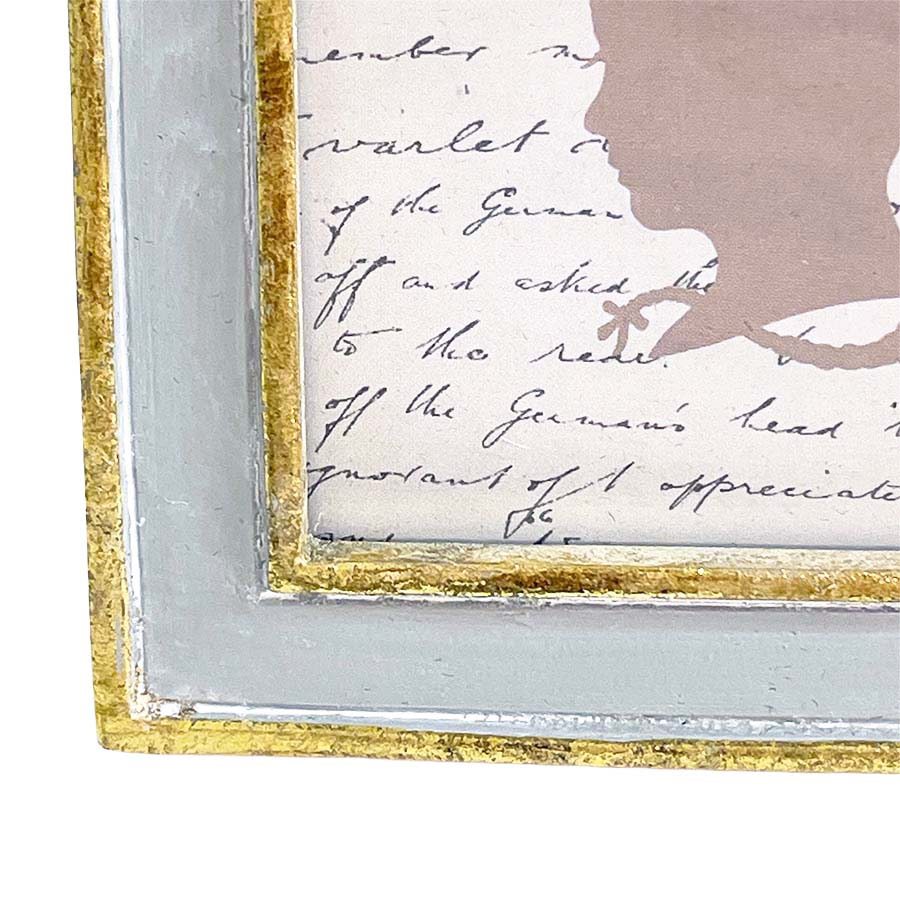 ember m
varlet
of the German
off and asked the
to the rear.
off the German's head
ignorant of I appreciate